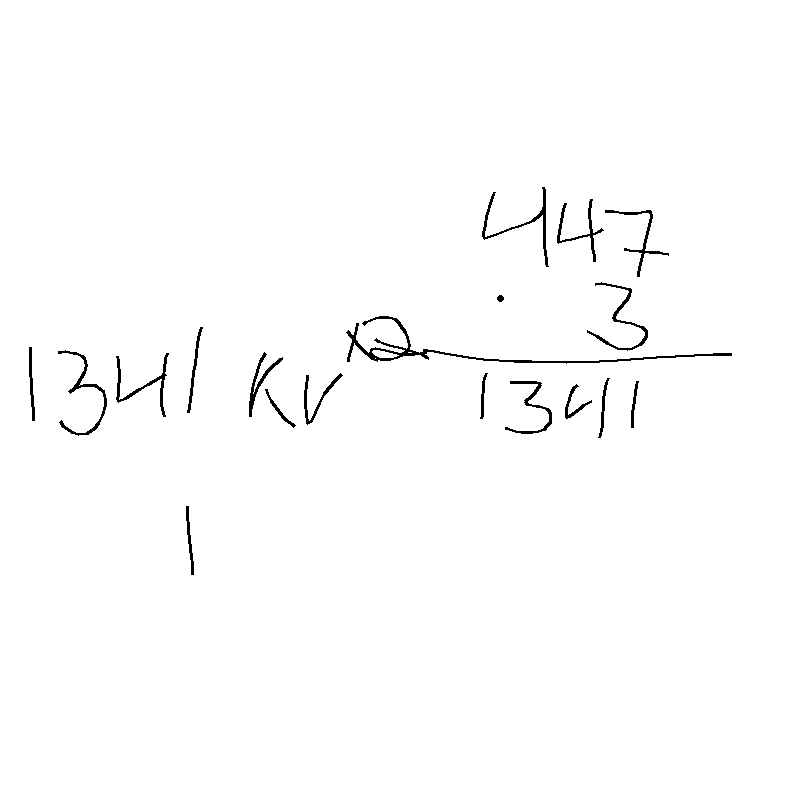 447
· 3
1341
1341 KV
1